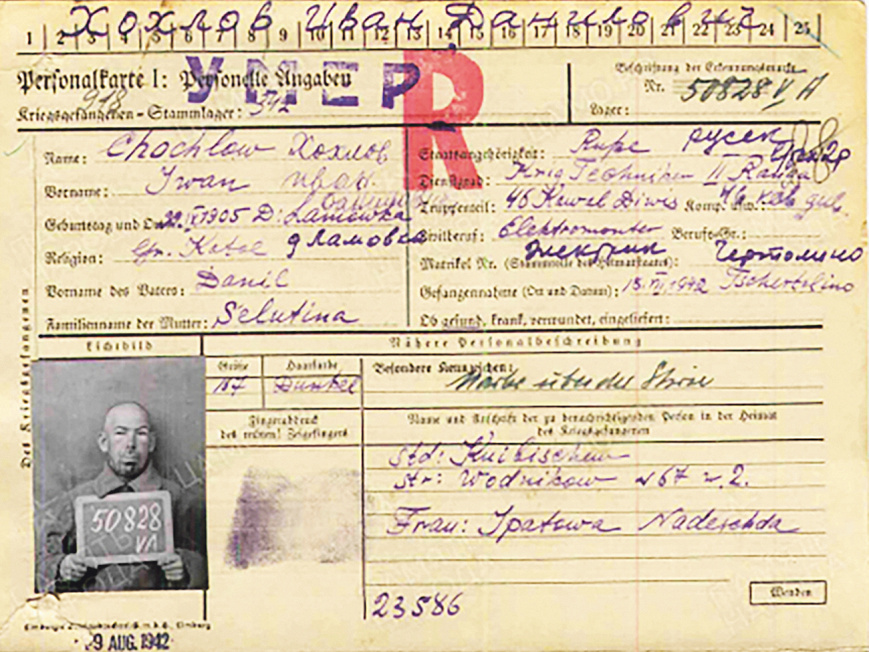 Хохлов Иван Данилович
1 2 3 4 5 6 7 8 9 10 11 12 13 14 15 16 17 18 19 20 21 22 23 24 25
Personalkarte I: Personelle Angaben
УМЕР
R
Kriegsgefangenen-Stammlager:
Beschriftung der Erkennungsmarke
Nr. 50828 VA
Lager:
Name: Chochlow Хохлов
Vorname: Iwan Иван
Geburtstag und Ort: 1905 D: Lamewka
д Ламовка
Religion: Gr. Katol
Vorname des Vaters: Danil
Familienname der Mutter: Selutina
Staatsangehörigkeit: Russe русск
Dienstgrad: Krig Techniker II Ranga
Truppenteil: 46 Kawal Diwis Komp. usw.:
Zivilberuf: Elektromonter Berufs-Gr.:
электрик
Matrikel Nr. (Stammrolle des Heimatstaates): Чертолино
Gefangennahme (Ort und Datum): 1942 Tschertolino
Ob gesund, krank, verwundet, eingeliefert:
Des Kriegsgefangenen
Lichtbild
Nähere Personalbeschreibung
Größe Haarfarbe
167 Dunkel
Besondere Kennzeichen:
Narbe über der Stirn
Fingerabdruck
des rechten! Zeigefingers
Name und Anschrift der zu benachrichtigenden Person in der Heimat
des Kriegsgefangenen
Std: Kuibischew
Str: Wodnikow N67 w. 2.
Frau: Ipatowa Nadeschda
50828
VA
23586
Wenden
9 AUG. 1942